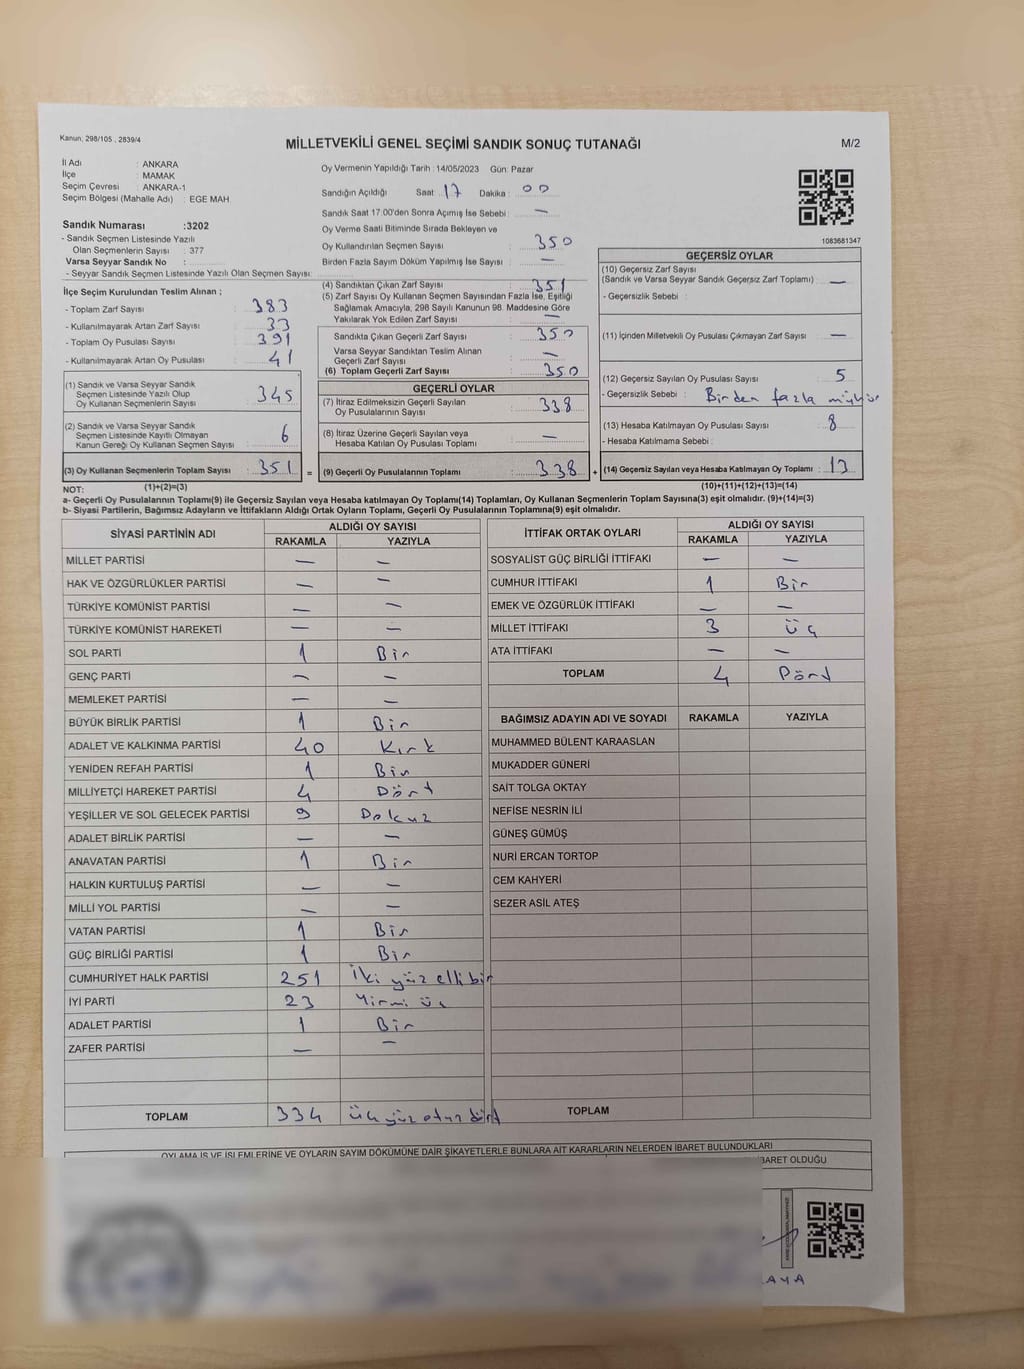 Kanun: 298/105 , 2839/4
MİLLETVEKİLİ GENEL SEÇİMİ SANDIK SONUÇ TUTANAĞI
M/2
İl Adı : ANKARA
İlçe : MAMAK
Seçim Çevresi : ANKARA-1
Seçim Bölgesi (Mahalle Adı) : EGE MAH.
Oy Vermenin Yapıldığı Tarih : 14/05/2023 Gün: Pazar
Sandığın Açıldığı Saat : 17 Dakika : 00
Sandık Saat 17.00'den Sonra Açımış İse Sebebi : —
Sandık Numarası :3202
- Sandık Seçmen Listesinde Yazılı
Olan Seçmenlerin Sayısı : 377
Varsa Seyyar Sandık No :
- Seyyar Sandık Seçmen Listesinde Yazılı Olan Seçmen Sayısı:
Oy Verme Saati Bitiminde Sırada Bekleyen ve
Oy Kullandırılan Seçmen Sayısı : 350
Birden Fazla Sayım Döküm Yapılmış İse Sayısı : —
1083681347
İlçe Seçim Kurulundan Teslim Alınan ;
- Toplam Zarf Sayısı : 383
- Kullanılmayarak Artan Zarf Sayısı : 33
- Toplam Oy Pusulası Sayısı : 391
- Kullanılmayarak Artan Oy Pusulası : 41
(1) Sandık ve Varsa Seyyar Sandık
Seçmen Listesinde Yazılı Olup
Oy Kullanan Seçmenlerin Sayısı : 345
(2) Sandık ve Varsa Seyyar Sandık
Seçmen Listesinde Kayıtlı Olmayan
Kanun Gereği Oy Kullanan Seçmen Sayısı : 6
(3) Oy Kullanan Seçmenlerin Toplam Sayısı : 351 =
(4) Sandıktan Çıkan Zarf Sayısı : 351
(5) Zarf Sayısı Oy Kullanan Seçmen Sayısından Fazla İse, Eşitliği
Sağlamak Amacıyla, 298 Sayılı Kanunun 98. Maddesine Göre
Yakılarak Yok Edilen Zarf Sayısı : —
Sandıkta Çıkan Geçerli Zarf Sayısı : 350
Varsa Seyyar Sandıktan Teslim Alınan
Geçerli Zarf Sayısı : —
(6) Toplam Geçerli Zarf Sayısı : 350
GEÇERLİ OYLAR
(7) İtiraz Edilmeksizin Geçerli Sayılan
Oy Pusulalarının Sayısı : 338
(8) İtiraz Üzerine Geçerli Sayılan veya
Hesaba Katılan Oy Pusulası Toplamı : —
(9) Geçerli Oy Pusulalarının Toplamı : 338 +
GEÇERSİZ OYLAR
(10) Geçersiz Zarf Sayısı
(Sandık ve Varsa Seyyar Sandık Geçersiz Zarf Toplamı) : —
- Geçersizlik Sebebi :
(11) İçinden Milletvekili Oy Pusulası Çıkmayan Zarf Sayısı : —
(12) Geçersiz Sayılan Oy Pusulası Sayısı : 5
- Geçersizlik Sebebi : Birden fazla mühür
(13) Hesaba Katılmayan Oy Pusulası Sayısı : 8
- Hesaba Katılmama Sebebi :
(14) Geçersiz Sayılan veya Hesaba Katılmayan Oy Toplamı : 13
NOT: (1)+(2)=(3)
(10)+(11)+(12)+(13)=(14)
a- Geçerli Oy Pusulalarının Toplamı(9) ile Geçersiz Sayılan veya Hesaba katılmayan Oy Toplamı(14) Toplamları, Oy Kullanan Seçmenlerin Toplam Sayısına(3) eşit olmalıdır. (9)+(14)=(3)
b- Siyasi Partilerin, Bağımsız Adayların ve İttifakların Aldığı Ortak Oyların Toplamı, Geçerli Oy Pusulalarının Toplamına(9) eşit olmalıdır.
SİYASİ PARTİNİN ADI
ALDIĞI OY SAYISI
RAKAMLA YAZIYLA
MİLLET PARTİSİ — —
HAK VE ÖZGÜRLÜKLER PARTİSİ — —
TÜRKİYE KOMÜNİST PARTİSİ — —
TÜRKİYE KOMÜNİST HAREKETİ — —
SOL PARTİ 1 Bir
GENÇ PARTİ — —
MEMLEKET PARTİSİ — —
BÜYÜK BİRLİK PARTİSİ 1 Bir
ADALET VE KALKINMA PARTİSİ 40 Kırk
YENİDEN REFAH PARTİSİ 1 Bir
MİLLİYETÇİ HAREKET PARTİSİ 4 Dört
YEŞİLLER VE SOL GELECEK PARTİSİ 9 Dokuz
ADALET BİRLİK PARTİSİ — —
ANAVATAN PARTİSİ 1 Bir
HALKIN KURTULUŞ PARTİSİ — —
MİLLİ YOL PARTİSİ — —
VATAN PARTİSİ 1 Bir
GÜÇ BİRLİĞİ PARTİSİ 1 Bir
CUMHURİYET HALK PARTİSİ 251 İki yüz elli bir
İYİ PARTİ 23 Yirmi üç
ADALET PARTİSİ 1 Bir
ZAFER PARTİSİ — —
TOPLAM 334 üç yüz otuz dört
İTTİFAK ORTAK OYLARI
ALDIĞI OY SAYISI
RAKAMLA YAZIYLA
SOSYALİST GÜÇ BİRLİĞİ İTTİFAKI — —
CUMHUR İTTİFAKI 1 Bir
EMEK VE ÖZGÜRLÜK İTTİFAKI — —
MİLLET İTTİFAKI 3 üç
ATA İTTİFAKI — —
TOPLAM 4 Dört
BAĞIMSIZ ADAYIN ADI VE SOYADI RAKAMLA YAZIYLA
MUHAMMED BÜLENT KARAASLAN
MUKADDER GÜNERİ
SAİT TOLGA OKTAY
NEFİSE NESRİN İLİ
GÜNEŞ GÜMÜŞ
NURİ ERCAN TORTOP
CEM KAHYERİ
SEZER ASİL ATEŞ
TOPLAM
OYLAMA İŞ VE İŞLEMLERİNE VE OYLARIN SAYIM DÖKÜMÜNE DAİR ŞİKAYETLERLE BUNLARA AİT KARARLARIN NELERDEN İBARET BULUNDUKLARI
İBARET OLDUĞU